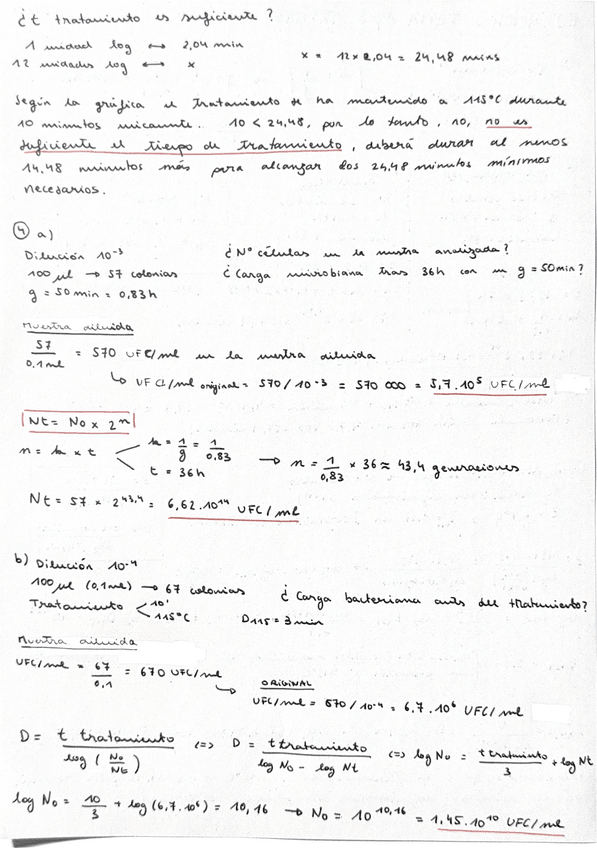 ¿t tratamiento es suficiente?
1 unidad log ↔ 2,04 min
12 unidades log ↔ x x = 12 × 2,04 = 24,48 mins
Según la gráfica el tratamiento se ha mantenido a 115°C durante
10 minutos unicamnte. 10 < 24,48, por lo tanto, no, no es
suficiente el tiempo de tratamiento, deberá durar al menos
14,48 minutos más para alcanzar los 24,48 minutos mínimos
necesarios.
④ a)
Dilución 10⁻³ ¿Nº células en la mstra analizada?
100 µl → 57 colonias ¿Carga microbiana tras 36h con un g = 50min?
g = 50 min = 0,83h
Muestra diluida
57/0,1ml = 570 UFC/ml en la mestra diluida
↳ UFC/ml original = 570/10⁻³ = 570 000 = 5,7·10⁵ UFC/ml
Nt = No × 2ⁿ
n = k × t k = 1/g = 1/0,83 t = 36h → n = 1/0,83 × 36 ≈ 43,4 generaciones
Nt = 57 × 2^43,4 = 6,62·10¹⁴ UFC/ml
b) Dilución 10⁻⁴
100 µl (0,1ml) → 67 colonias ¿Carga bacteriana ants del tratamiento?
Tratamiento 10' 115°C D115 = 3 min
Muestra diluida
UFC/ml = 67/0,1 = 670 UFC/ml
↳ ORIGINAL
UFC/ml = 670/10⁻⁴ = 6,7·10⁶ UFC/ml
D = t tratamiento / log (No/Nt) <=> D = t tratamiento / log No - log Nt <=> log No = t tratamiento / 3 + log Nt
log No = 10/3 + log (6,7·10⁶) = 10,16 → No = 10^10,16 = 1,45·10¹⁰ UFC/ml